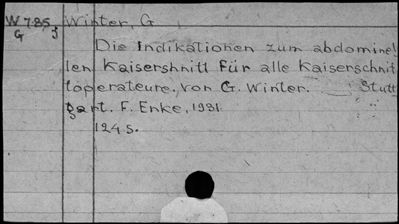 W785, Winter, G
G j
Die Indikationen zum abdominel
len Kaisershnitt für alle Kaiserschnit
toperateure, von G. Winter. Stutt
gart. F. Enke, 1931.
124 S.